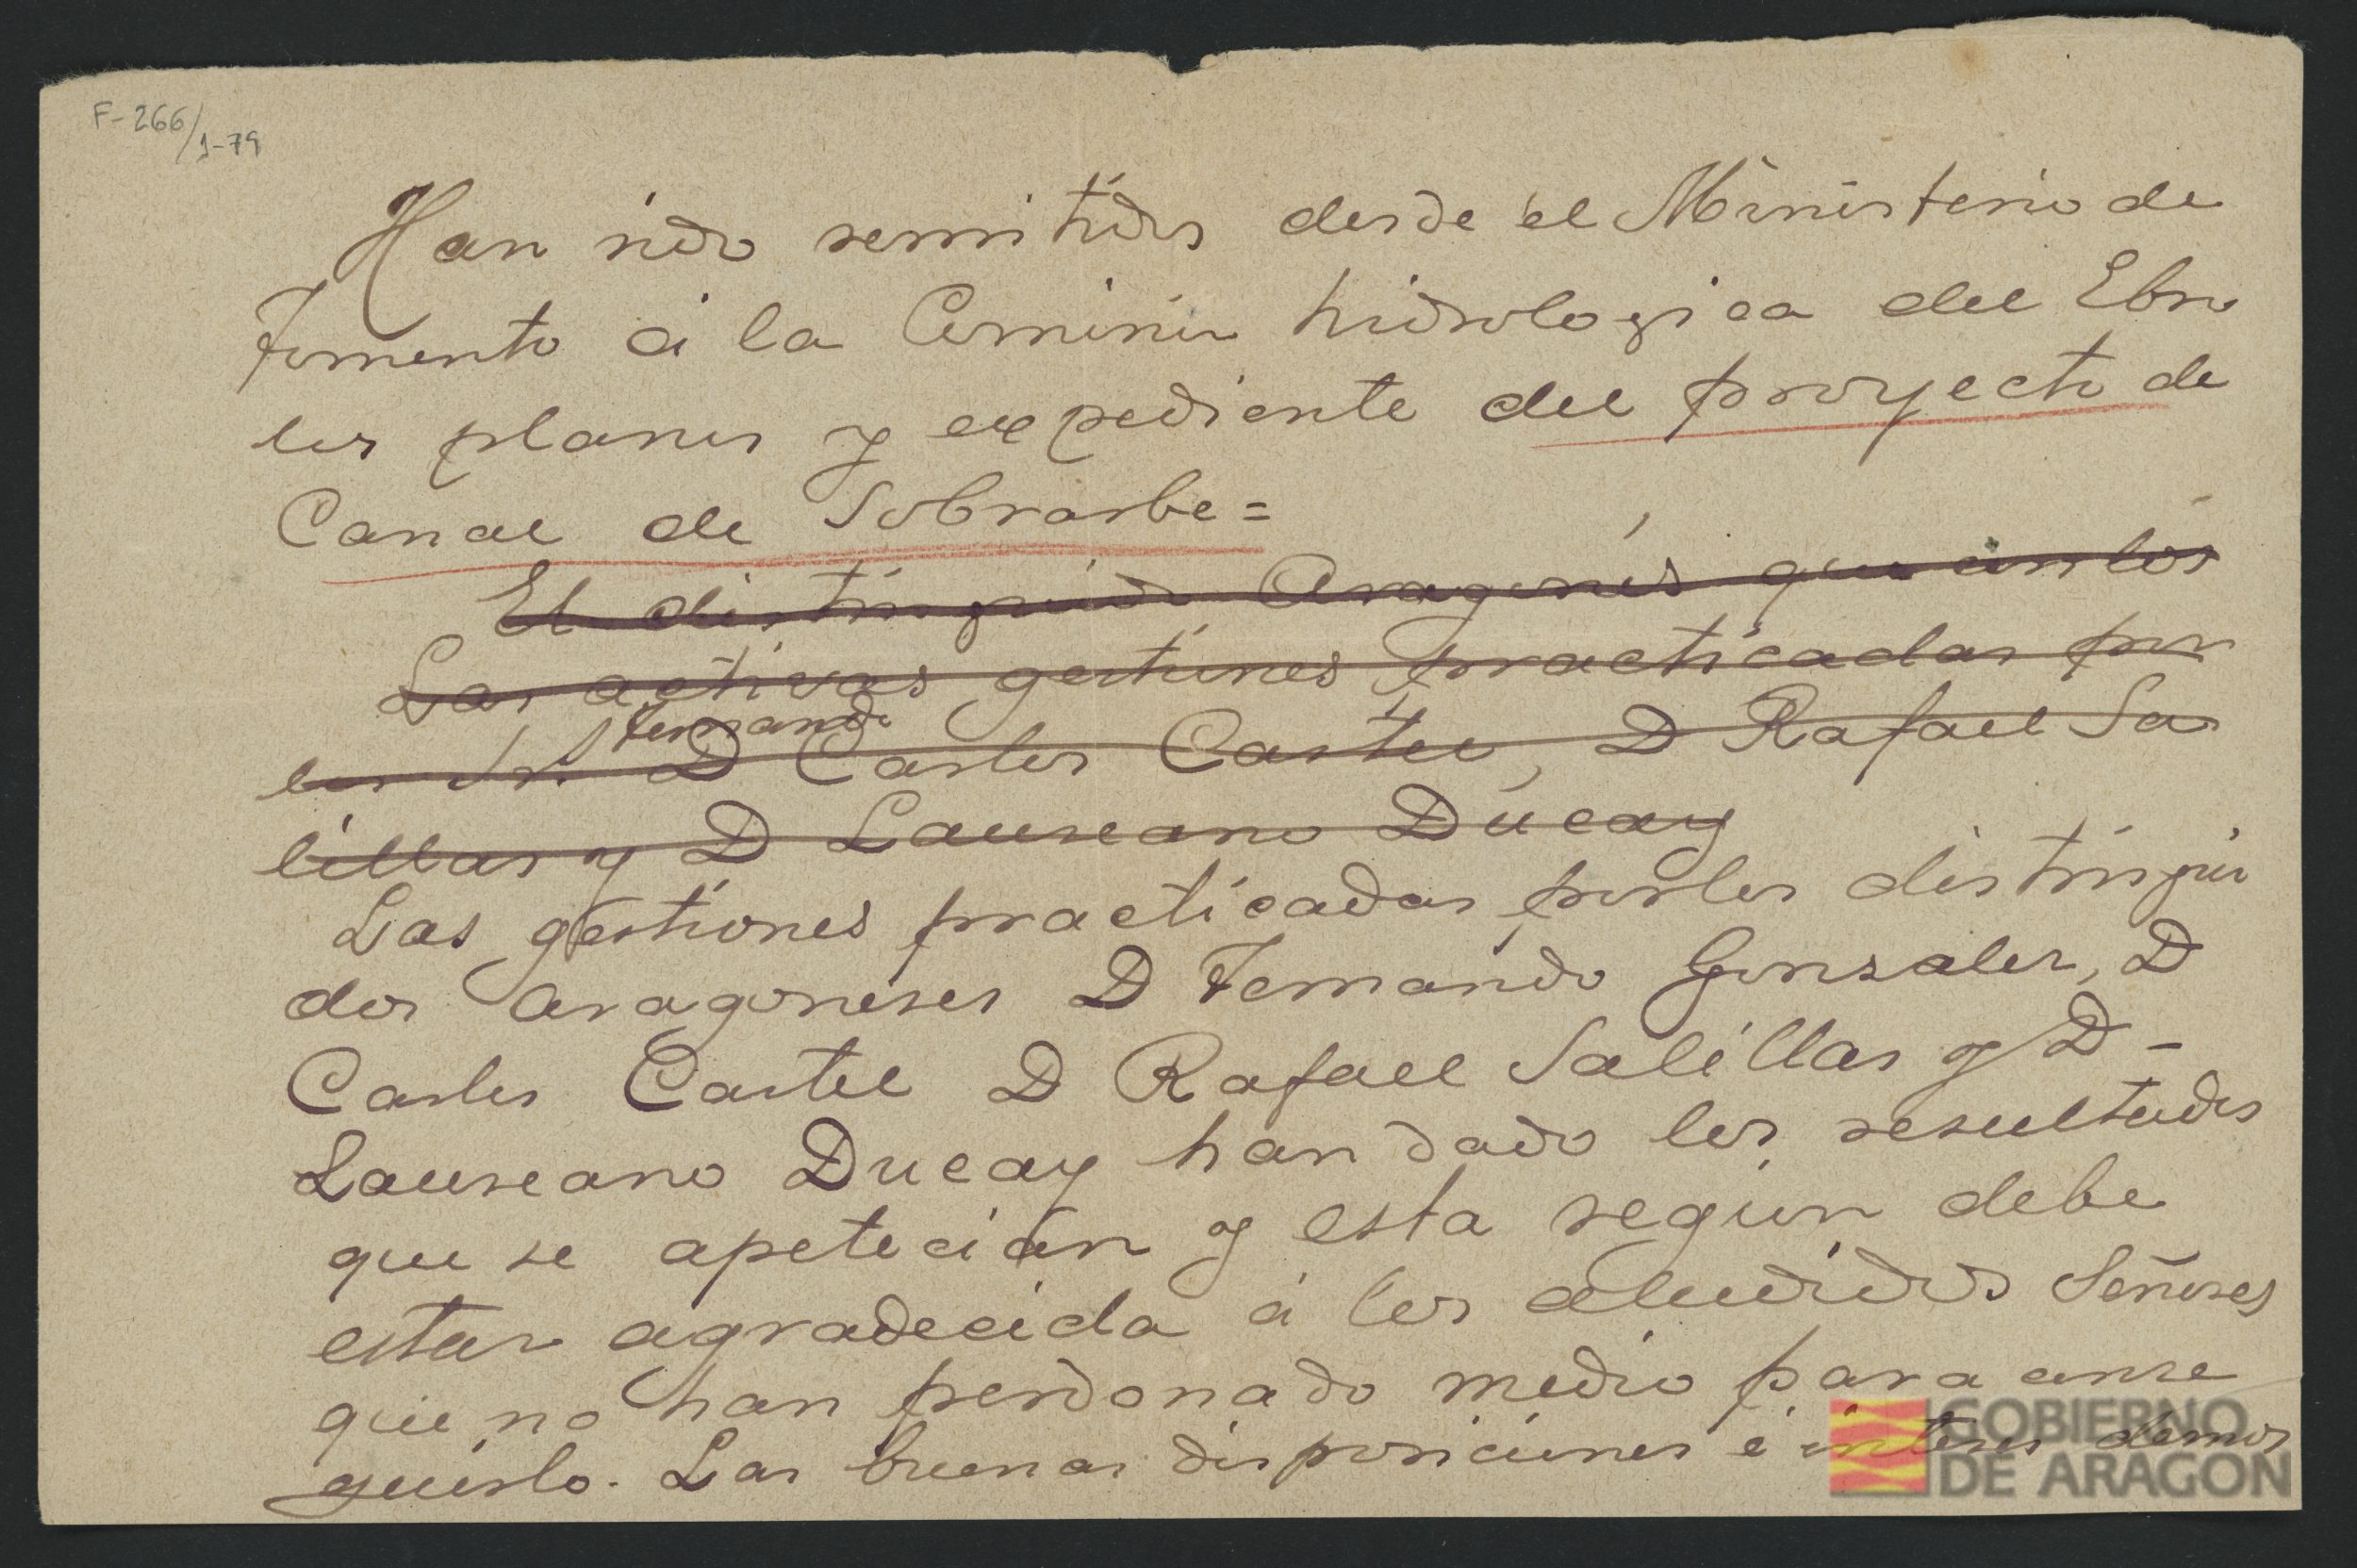 F-266/1-79
Han sido remitidos desde el Ministerio de
Fomento á la Comision hidrologica del Ebro
los planos y expediente del proyecto de
Canal de Sobrarbe =
El distinguido Aragonés que con los
Las activas gestiones practicadas por
Fernando
los Sr. D Carlos Castel, D Rafael Sa
lillas y D Laureano Ducay
Las gestiones practicadas por los distingui
dos aragoneses D Fernando Gonzalez, D
Carlos Castel D Rafael Salillas y D -
Laureano Ducay han dado los resultados
que se apetecian y esta region debe
estar agradecida á los aludidos Señores
que no han perdonado medio para conse
guirlo. Las buenas disposiciones é interes demos
GOBIERNO
DE ARAGON